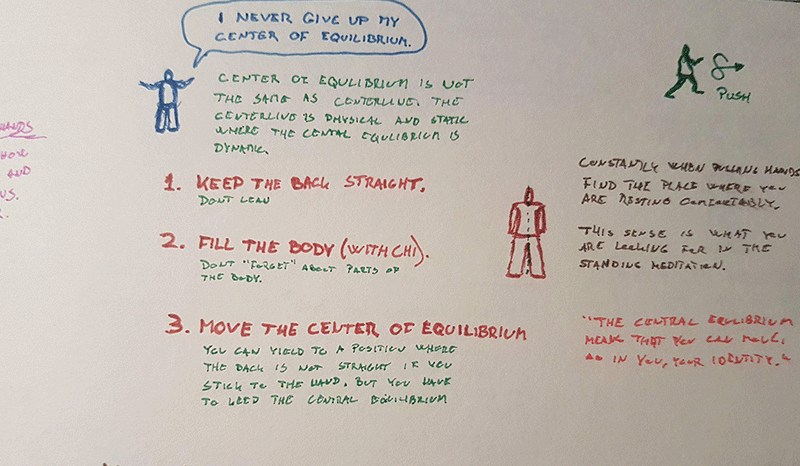 I NEVER GIVE UP MY
CENTER OF EQUILIBRIUM.
CENTER OF EQULIBRIUM IS NOT
THE SAME AS CENTERLINE. THE
CENTERLINE IS PHYSICAL AND STATIC
WHERE THE CENTAL EQULIBRIUM IS
DYNAMIC.
PUSH
HANDS
AND
US.
1. KEEP THE BACK STRAIGHT.
DONT LEAN
2. FILL THE BODY (WITH CHI).
DONT "FORGET" ABOUT PARTS OF
THE BODY.
3. MOVE THE CENTER OF EQUILIBRIUM
YOU CAN YIELD TO A POSITION WHERE
THE BACK IS NOT STRAIGHT IF YOU
STICK TO THE HAND. BUT YOU HAVE
TO LEED THE CENTRAL EQUILIBRIUM
CONSTANTLY WHEN PUSHING HANDS
FIND THE PLACE WHERE YOU
ARE RESTING COMFORTABLY.
THIS SENSE IS WHAT YOU
ARE LOOKING FOR IN THE
STANDING MEDITATION.
"THE CENTRAL EQULIBRIUM
MEANS THAT YOU CAN MOVE,
AS IN YOU, YOUR IDENTITY."